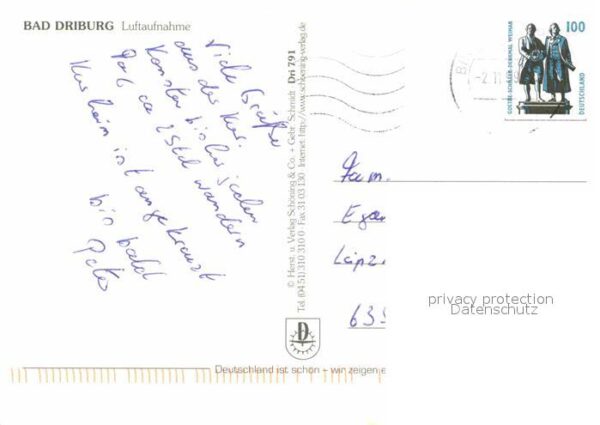 BAD DRIBURG Luftaufnahme
Viele Grüße
aus der Kur.
Konnten bis hier
Port ca 2 Std wandern
Kurheim ist angekreuzt
bis bald
Peter
© Herst. u. Verlag Schöning & Co. + Gebr. Schmidt Dri 291
Tel. (04 51) 310 310 0 · Fax 31 03 130 · Internet: http://www.schoening-verlag.de
100
GOETHE-SCHILLER-DENKMAL WEIMAR
DEUTSCHLAND
Fam.
Leipz
privacy protection
Datenschutz
D
Deutschland ist schön – wir zeigen e